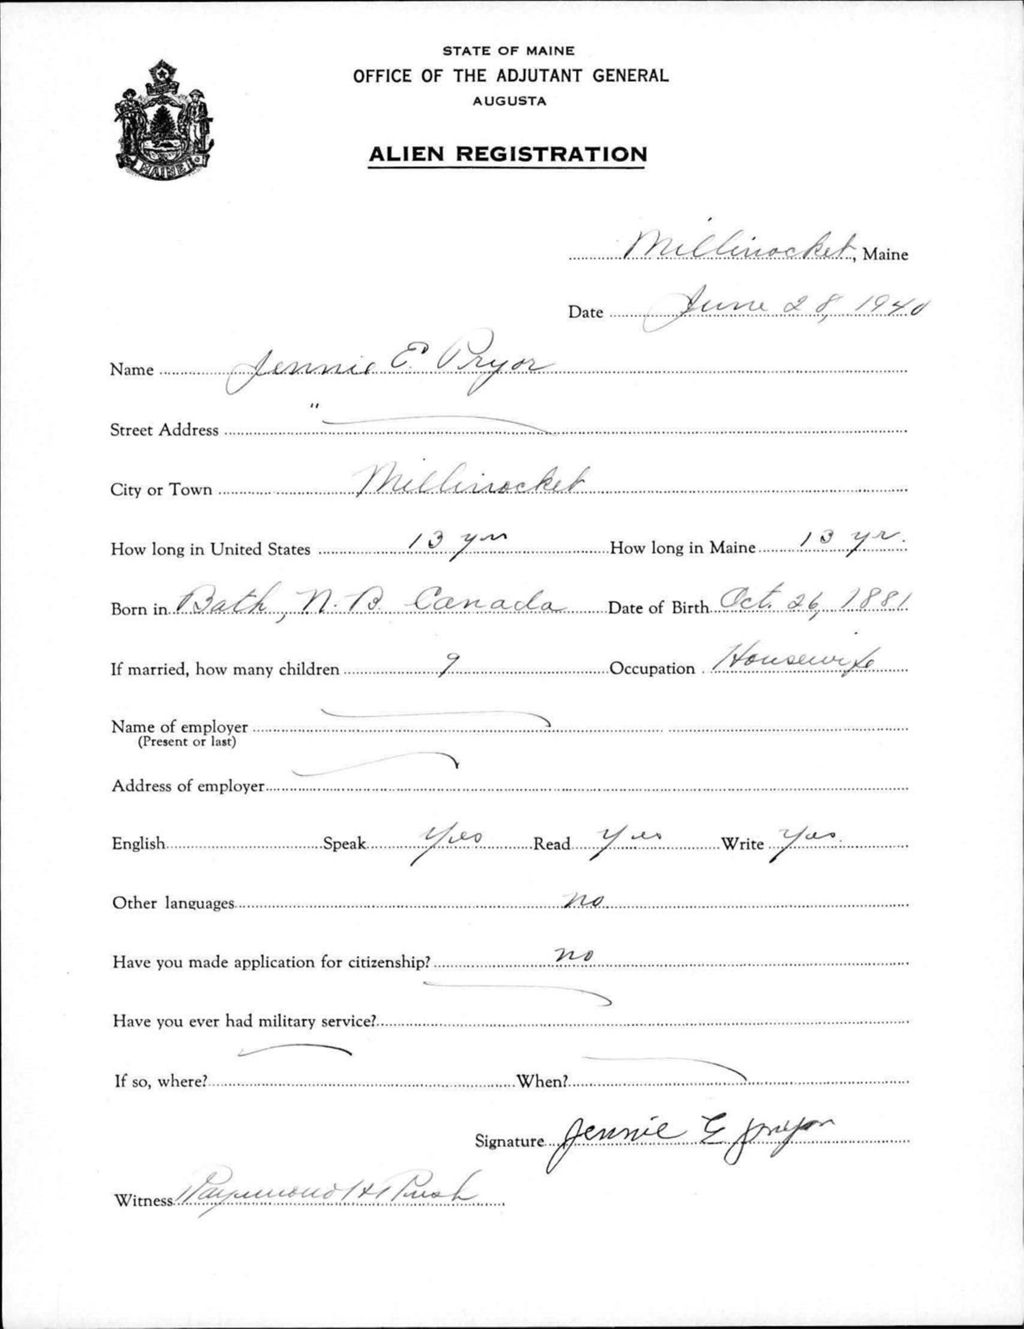 STATE OF MAINE
OFFICE OF THE ADJUTANT GENERAL
AUGUSTA
MAINE
ALIEN REGISTRATION
Millinocket, Maine
Date June 28, 1940
Name Jennie E. Pryor
Street Address "
City or Town Millinocket
How long in United States 13 yrs How long in Maine 13 yr.
Born in Bath, N.B. Canada Date of Birth Oct. 26, 1881
If married, how many children 9 Occupation Housewife
Name of employer
(Present or last)
Address of employer
English Speak Yes Read Yes Write Yes.
Other languages no
Have you made application for citizenship? no
Have you ever had military service?
If so, where? When?
Signature Jennie E Pryor
Witness Raymond H